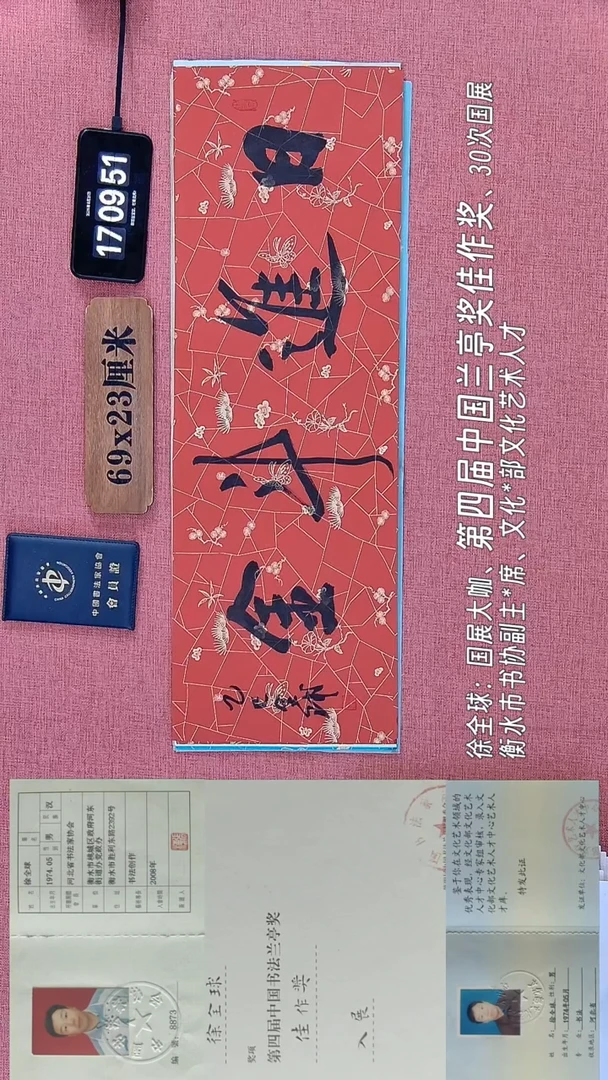 日進斗金
17 09 51
69x23厘米
中國書法家協會
會員證
徐全球：国展大咖、第四届中国兰亭奖佳作奖、30次国展
衡水市书协副主*席、文化*部文化艺术人才
徐全球
1974.05
男
汉
河北省书法家协会
衡水市桃城区政府河东
街道办党政办
衡水市胜利东路2202号
书法创作
2008年
8873
徐全球
奖项
第四届中国书法兰亭奖
佳作奖
入展
鉴于你在文化艺术领域的
优秀表现，经文化部文化艺术
人才中心专家组审核，录入文
化部文化艺术人才中心艺术人
才库。
特发此证
发证单位：文化部文化艺术人才中心
姓名：徐全球
性别：男
出生年月：1974年05月
专业：书法